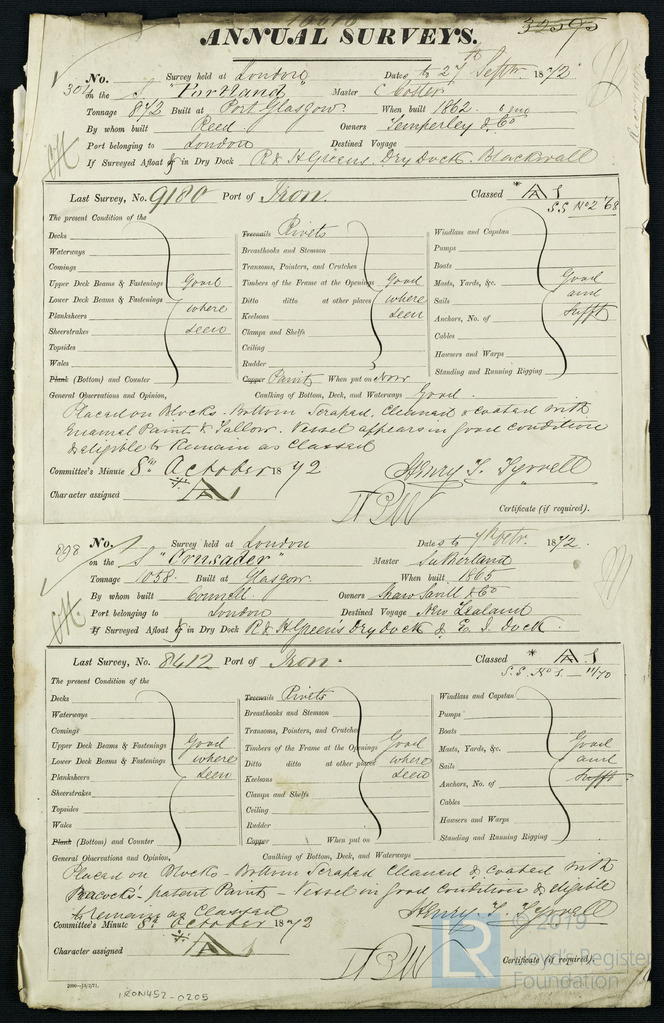 ANNUAL SURVEYS.
304 No. Survey held at London Date, to 27th Septr. 1872
on the S "Portland" Master Coster
Tonnage 872 Built at Port Glasgow. When built 1862.
By whom built Reed Owners Temperley & Co
Port belonging to London Destined Voyage
If Surveyed Afloat or in Dry Dock R & H Greens. Dry Dock. Blackwall
Last Survey, No. 9180 Port of Iron. Classed * A 1
S.S No 2 '68
The present Condition of the
Decks
Waterways
Comings
Upper Deck Beams & Fastenings Good
Lower Deck Beams & Fastenings where
Planksheers
Sheerstrakes seen
Topsides
Wales
Plank (Bottom) and Counter
Treenails Rivets
Breasthooks and Stemson
Transoms, Pointers, and Crutches
Timbers of the Frame at the Openings Good
Ditto ditto at other places where
Keelsons seen
Clamps and Shelfs
Ceiling
Rudder
Copper Paint When put on Now
Windlass and Capstan
Pumps
Boats
Masts, Yards, &c. Good
Sails and
Anchors, No. of Sufft
Cables
Hawsers and Warps
Standing and Running Rigging
General Observations and Opinion, Caulking of Bottom, Deck, and Waterways Good.
Placed on Blocks. Bottom Scraped, Cleaned & coated with
Enamel Paint & Tallow. Vessel appears in good condition
& eligible to Remain as Classed
Committee's Minute 8th October 1872 Henry T. Tyrrell
Character assigned * A 1
Certificate (if required).
898 No. Survey held at London Date, to 7 Octr. 1872.
on the S "Crusader" Master Sutherland
Tonnage 1058. Built at Glasgow. When built 1865
By whom built Connell. Owners Shaw Savill & Co
Port belonging to London Destined Voyage New Zealand
If Surveyed Afloat or in Dry Dock R & H Green's Dry Dock & E. I. Dock.
Last Survey, No. 8612 Port of Iron. Classed * A 1
S.S. No 1 - 11/70
The present Condition of the
Decks
Waterways
Comings
Upper Deck Beams & Fastenings Good
Lower Deck Beams & Fastenings where
Planksheers seen
Sheerstrakes
Topsides
Wales
Plank (Bottom) and Counter
Treenails Rivets
Breasthooks and Stemson
Transoms, Pointers, and Crutches
Timbers of the Frame at the Openings Good
Ditto ditto at other places where
Keelsons seen
Clamps and Shelfs
Ceiling
Rudder
Copper When put on
Windlass and Capstan
Pumps
Boats
Masts, Yards, &c. Good
Sails and
Anchors, No. of Sufft
Cables
Hawsers and Warps
Standing and Running Rigging
General Observations and Opinion, Caulking of Bottom, Deck, and Waterways
Placed on Blocks - Bottom Scraped Cleaned & coated with
Peacock's patent Paint - Vessel in good condition & eligible
to remain as Classed Henry T. Tyrrell
Committee's Minute 8th October 1872
Character assigned * A 1
Certificate (if required).
2000—13/2/71.
IRON452-0205
© 2019
LR Lloyd's Register
Foundation